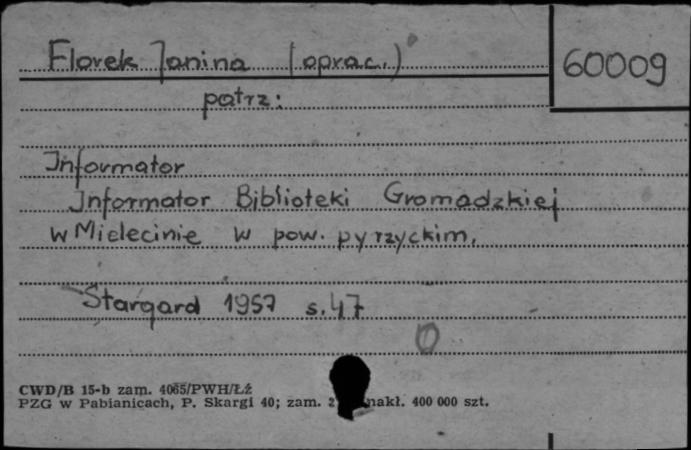 Florek Janina (oprac.)
60009
patrz:
Informator
Informator Biblioteki Gromadzkiej
w Mielecinie w pow. pyrzyckim,
Stargard 1957 s. 47
CWD/B 15-b zam. 4065/PWH/Łź
PZG w Pabianicach, P. Skargi 40; zam. nakł. 400 000 szt.